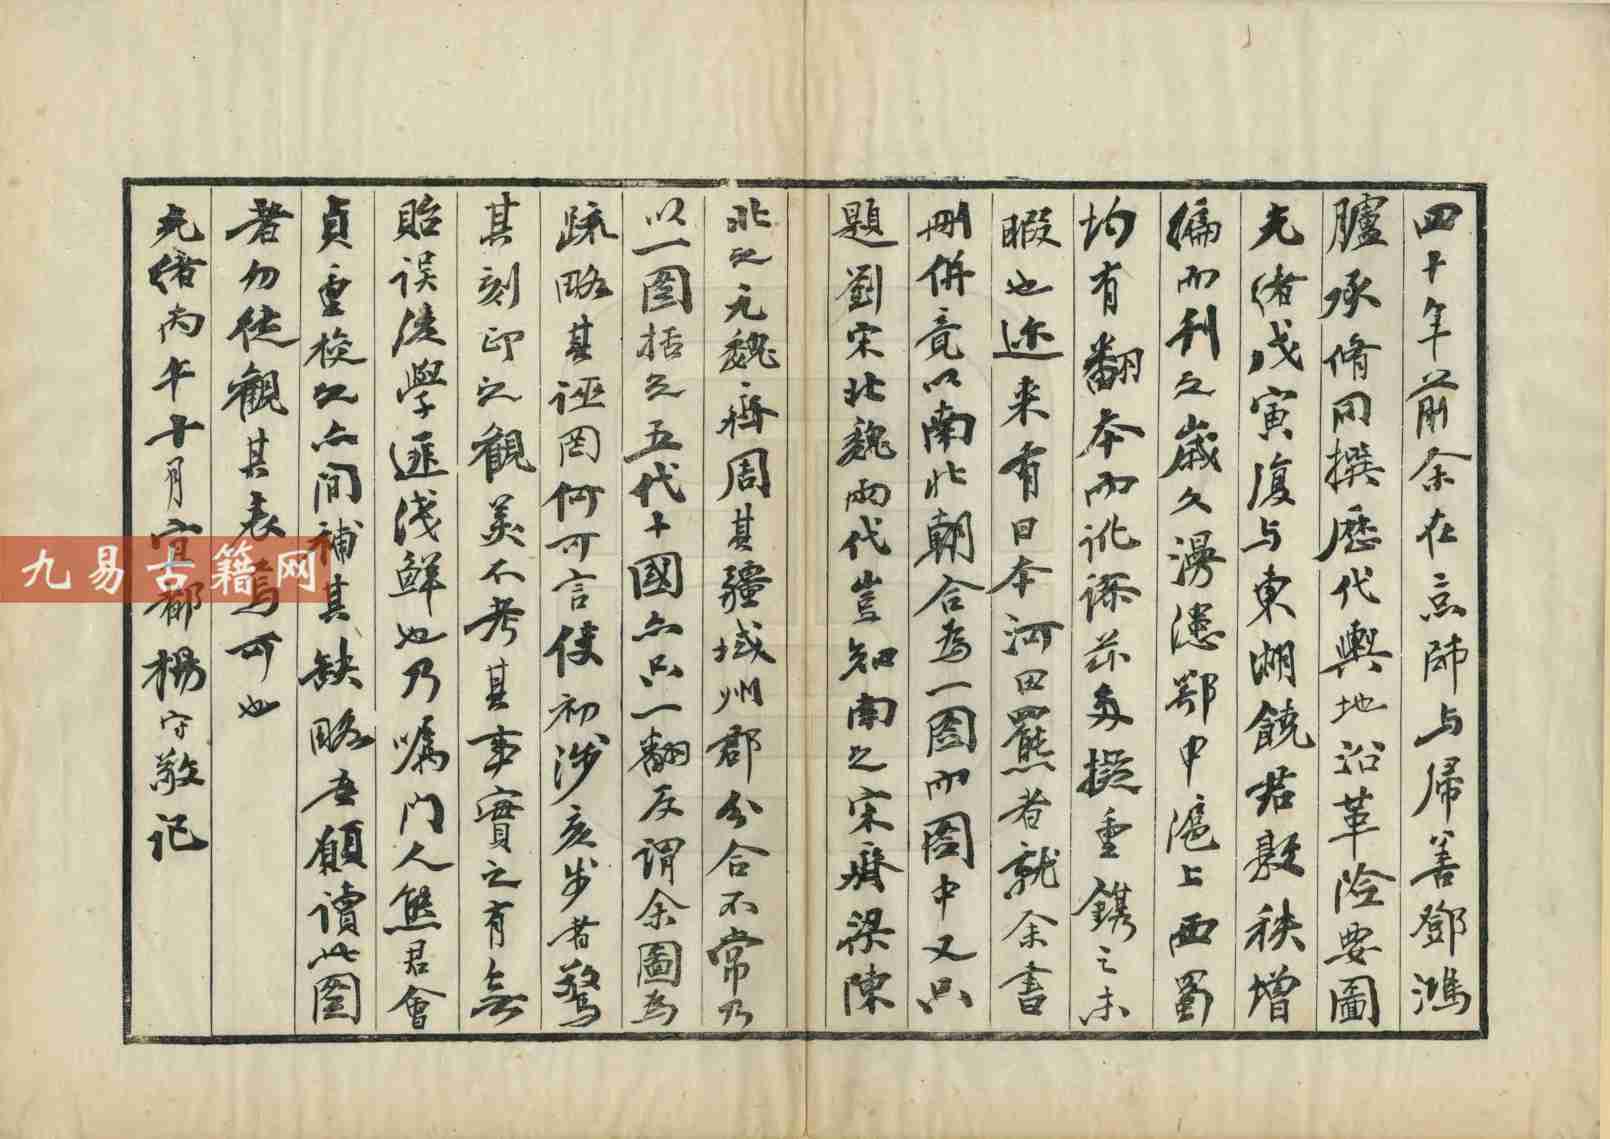 四十年前余在京師与歸善鄧鴻
臚承脩同撰歷代輿地沿革險要圖
光緒戊寅復与東湖饒君敦秩增
編而刊之歲久漫漶鄂中滬上西蜀
均有翻本而訛謬茲多擬重鐫之未
暇也迩来有日本河田羆者就余書
刪併竟以南北朝合為一圖而圖中又只
題劉宋北魏兩代豈知南之宋齊梁陳
北之元魏齊周其疆域州郡分合不常乃
以一圖括之五代十國亦只一翻反謂余圖為
疏略其誣罔何可言使初涉亥步者驚
其刻印之觀美不考其事實之有無
貽误後學匪浅鮮也乃嘱门人熊君會
貞重校之亦间補其缺略吾願讀此圖
者勿徒觀其表焉可也
光緒丙午十月宜都楊守敬记
九易古籍网